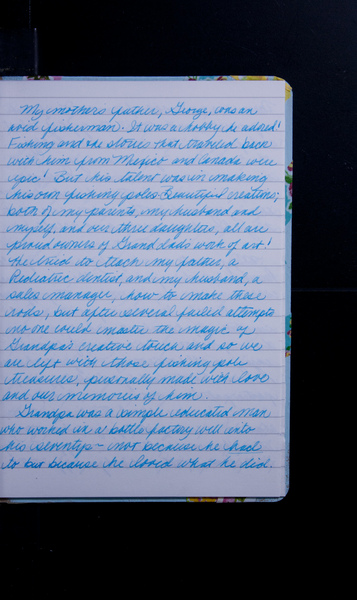 My mothers father, George, was an
avid fisherman. It was a hobby he adored!
Fishing and the stories that traveled back
with him from Mexico and Canada were
epic! But his talent was in making
his own fishing poles. Beautiful creations;
both of my parents, my husband and
myself, and our three daughters, all are
proud owners of Grand dad's work of art!
He tried to teach my father, a
Pediatric dentist, and my husband, a
sales manager, how to make these
rods, but after several failed attempts
no one could master the magic of
Grandpa's creative touch and so we
are left with those fishing pole
treasures, personally made with love
and our memories of him.
Grandpa was a simple educated man
who worked in a bottle factory well into
his seventys - not because he had
to but because he loved what he did.